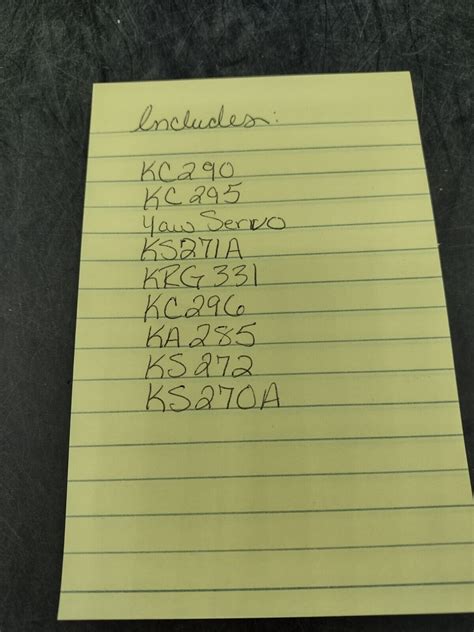 Includes:
KC290
KC295
Yaw Servo
KS271A
KRG331
KC296
KA285
KS272
KS270A